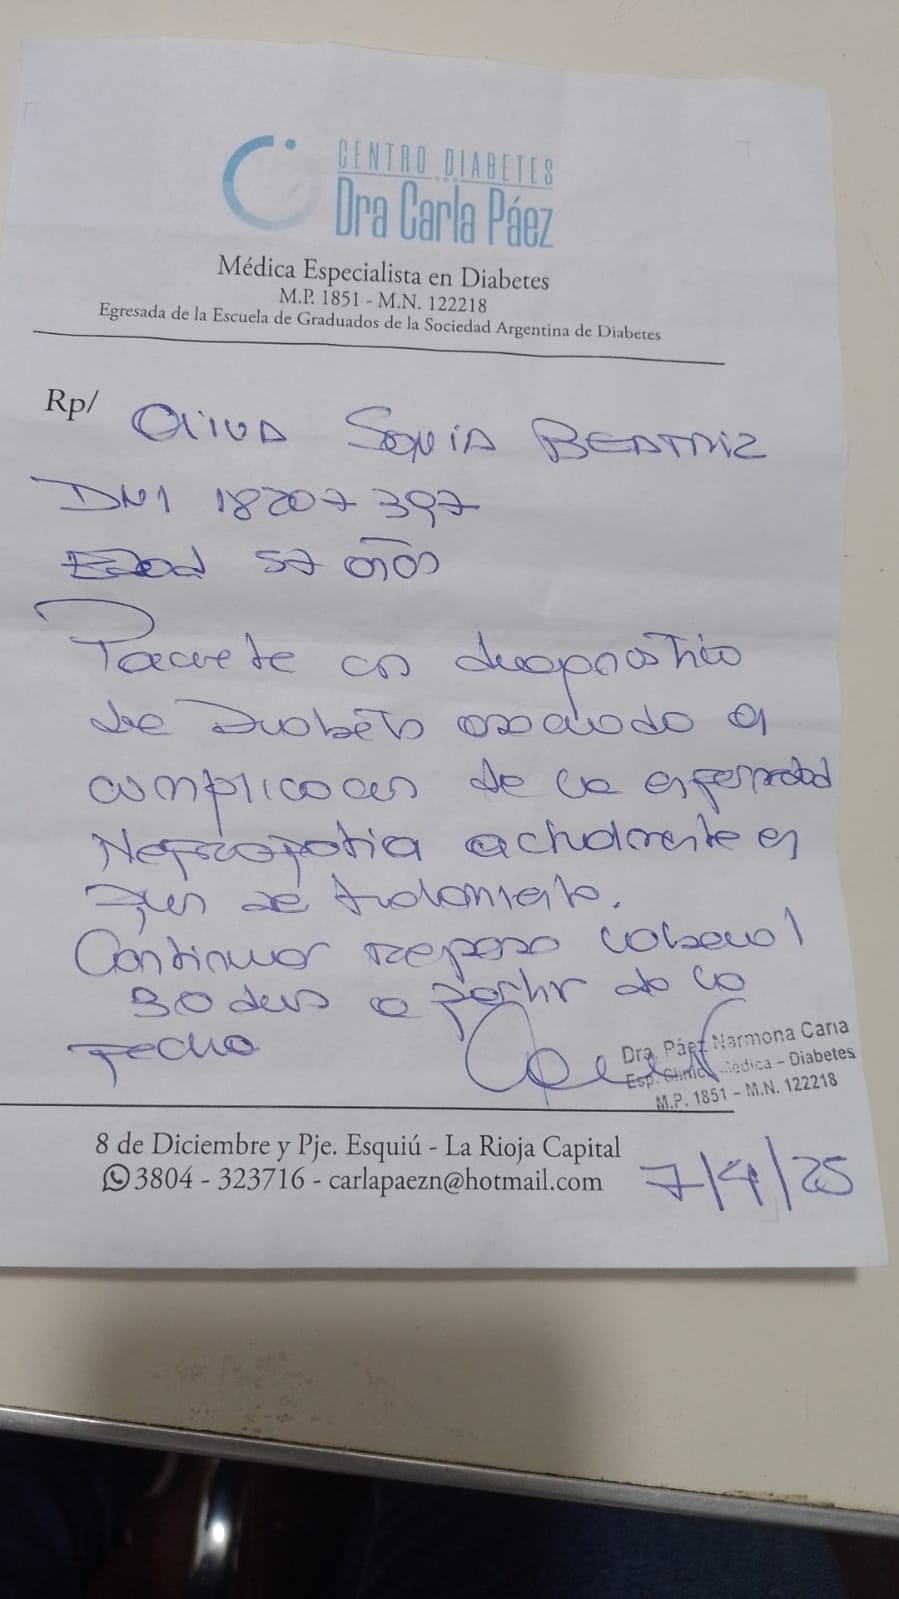 CENTRO DIABETES
Dra Carla Páez
Médica Especialista en Diabetes
M.P. 1851 - M.N. 122218
Egresada de la Escuela de Graduados de la Sociedad Argentina de Diabetes
Rp/ Oliva Sonia BEATRIZ
DNI 18207397
Edad 57 años
Paciente con diagnostico
de Diabetes asociado a
complicaciones de la enfermedad
Nefropatia actualmente en
de tratamiento.
Continuar reposo laboral
30 dias a partir de la
fecha
Dra. Páez Narmona Carla
Esp. Clínica Médica - Diabetes
M.P. 1851 - M.N. 122218
8 de Diciembre y Pje. Esquiú - La Rioja Capital
3804 - 323716 - carlapaezn@hotmail.com
7/4/25